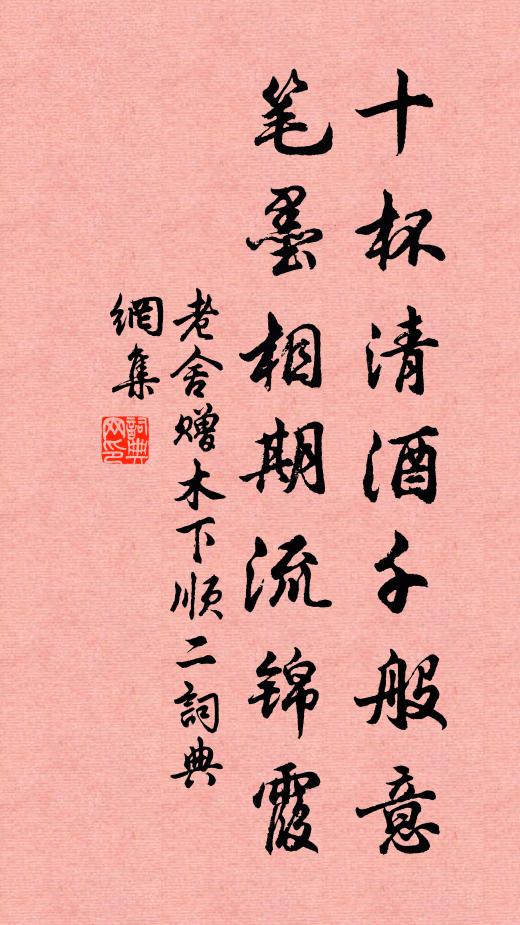 十杯清酒千般意
笔墨相期流锦霞
老舍赠木下顺二詞典
網集
詞典
网印